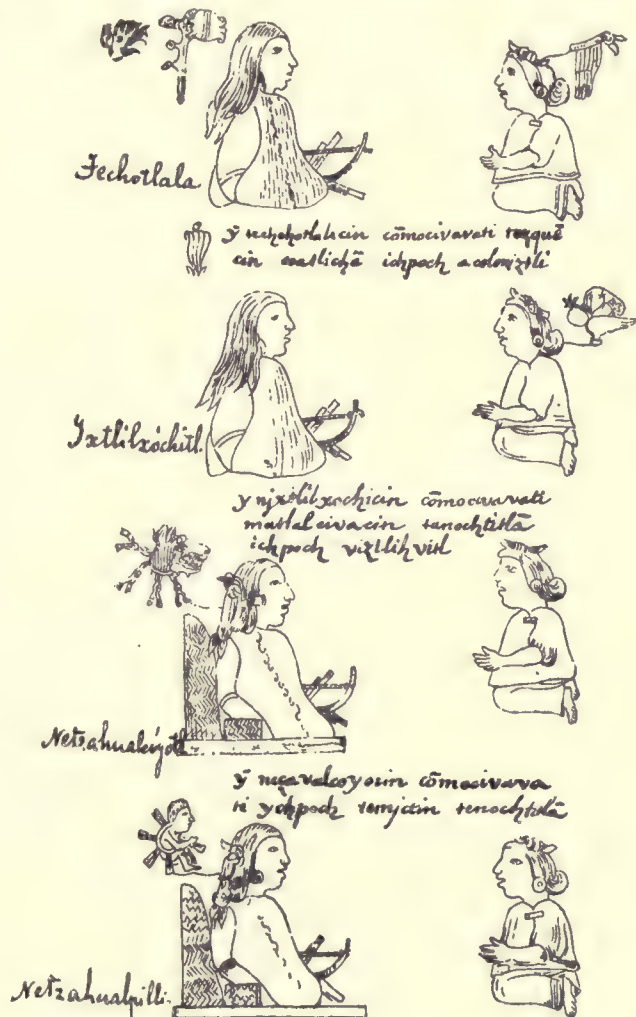 Techotlala
ȳ techchotlalacin cōmocivavati tozquē
cin coatlichā ichpoch acolmiztli
Ixtlilxóchitl.
y njxtlilxochicin cōmocivavati
matlalcivacin tenochtitlā
ichpoch viztlihvitl
Netzahualcóyotl.
ȳ neçavalcoyocin cōmocivava
ti ychpoch temjctin tenochtitlā
Netzahualpilli.